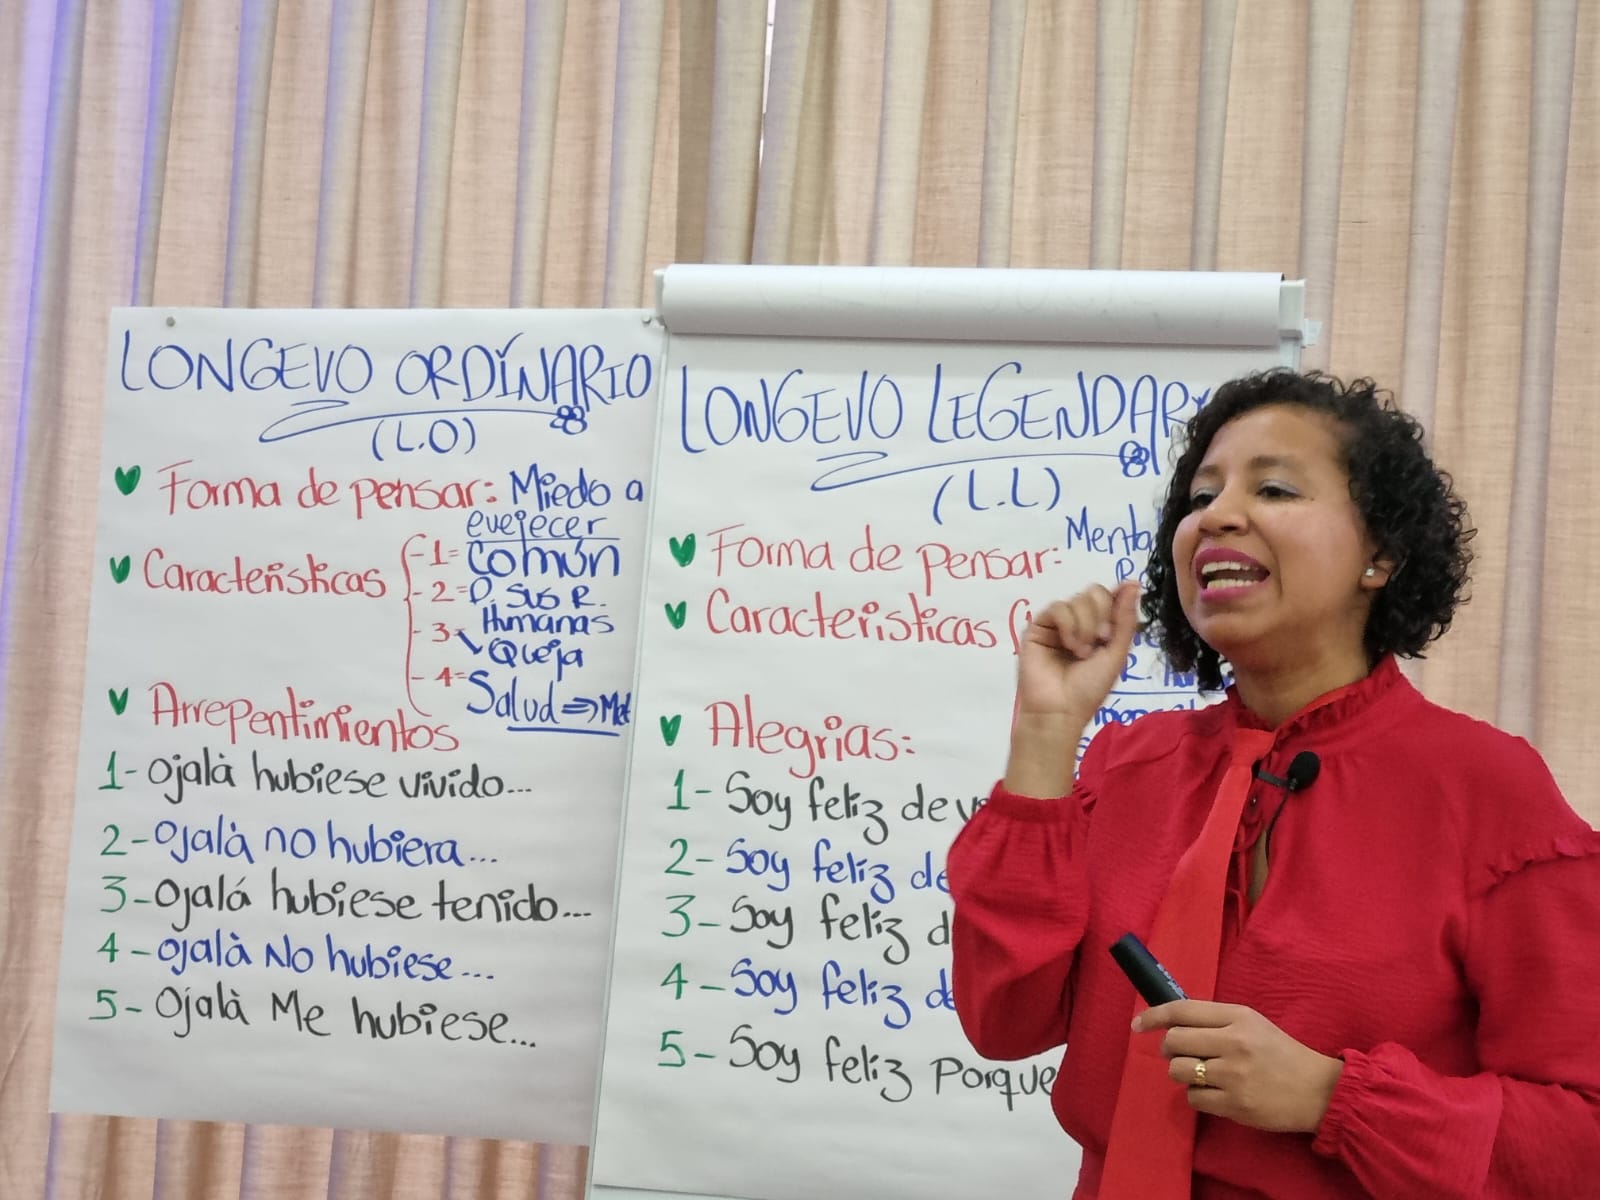 LONGEVO ORDINARIO
(L.O)
Forma de pensar: Miedo a
evejecer
Características
1= Común
2= P. Sus R.
Humanas
3- Queja
4= Salud ⇒ Met
Arrepentimientos
1- Ojalà hubiese vivido...
2- Ojalà no hubiera...
3- Ojalá hubiese tenido...
4- Ojalà No hubiese...
5- Ojalà Me hubiese...
LONGEVO LEGENDAR
(L.L)
Forma de pensar: Menta
Características
Alegrias:
1- Soy feliz de v
2- Soy feliz de
3- Soy feliz d
4- Soy feliz de
5- Soy feliz Porque